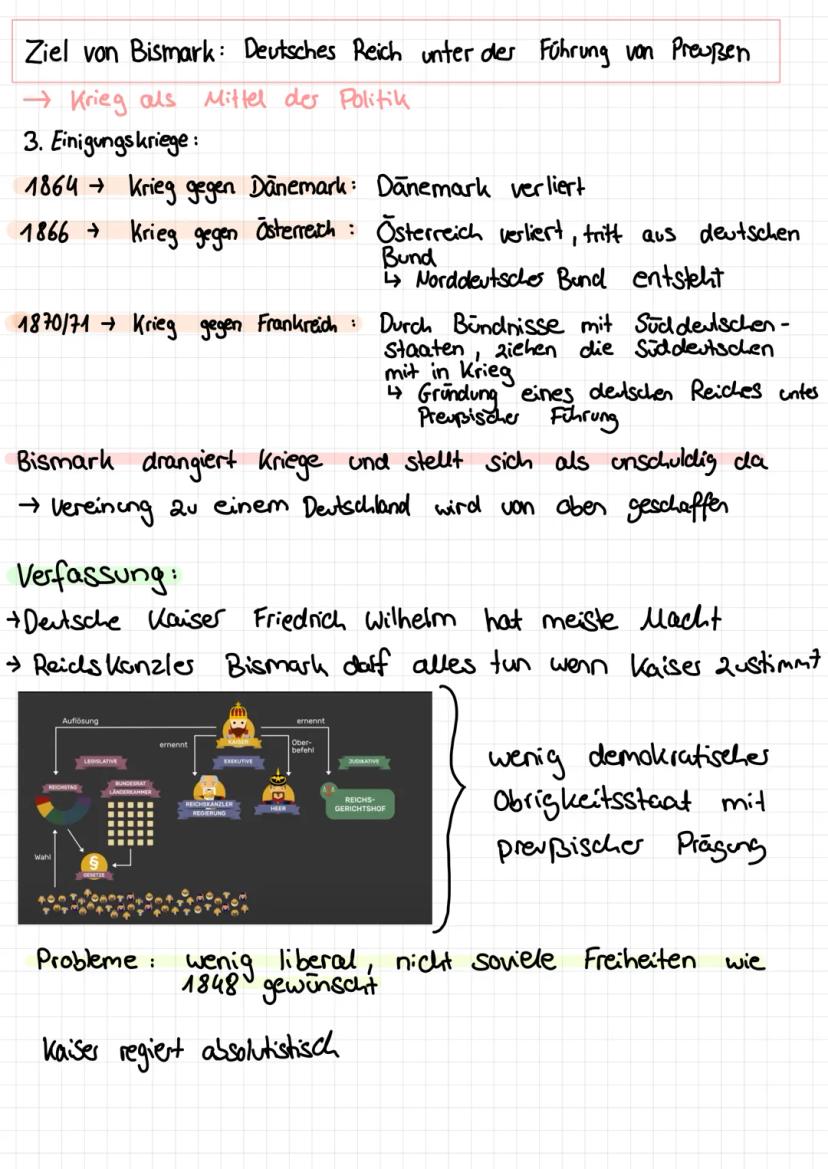 Ziel von Bismark: Deutsches Reich unter der Führung von Preußen
→ Krieg als Mittel der Politik
3. Einigungskriege:
1864 → Krieg gegen Dänemark: Dänemark verliert
1866 → Krieg gegen Österreich: Österreich verliert, tritt aus deutschen
Bund
↳ Norddeutscher Bund entsteht
1870/71 → Krieg gegen Frankreich: Durch Bündnisse mit Süddeutschen-
staaten, ziehen die Süddeutschen
mit in Krieg
↳ Gründung eines deutschen Reiches unter
Preußischer Führung
Bismark drangiert Kriege und stellt sich als unschuldig da
→ Vereinung zu einem Deutschland wird von oben geschaffen
Verfassung:
→ Deutsche Kaiser Friedrich Wilhelm hat meiste Macht
→ Reichskanzler Bismark darf alles tun wenn Kaiser zustimmt
Auflösung
ernennt
KAISER
ernennt
Ober-
befehl
LEGISLATIVE
EXEKUTIVE
JUDIKATIVE
REICHSTAG
BUNDESRAT
LÄNDERKAMMER
REICHSKANZLER
REGIERUNG
HEER
REICHS-
GERICHTSHOF
Wahl
§
GESETZE
wenig demokratischer
Obrigkeitsstaat mit
preußischer Prägung
Probleme: wenig liberal, nicht soviele Freiheiten wie
1848 gewünscht
Kaiser regiert absolutistisch